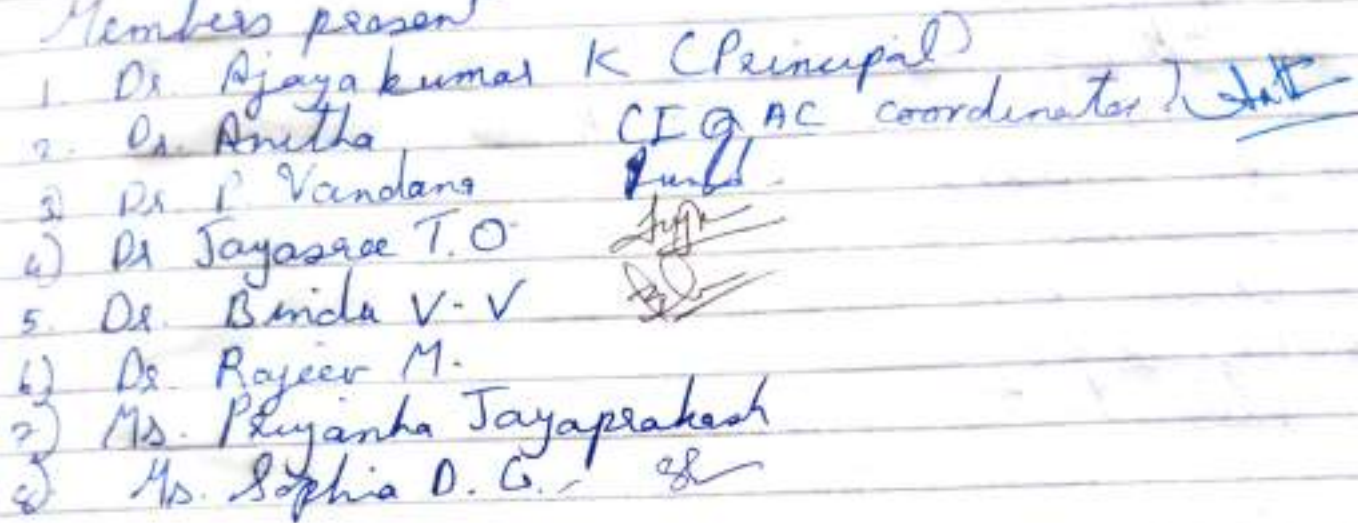 Members present
1. Dr. Ajayakumar K (Principal)
2. Dr. Anitha (IQAC coordinator)
3) Dr P Vandana
4) Dr Jayasree T.O
5. Dr. Bindu V.V
6) Dr. Rajeev M.
7) Ms. Priyanka Jayaprakash
8) Ms. Sophia D.G.